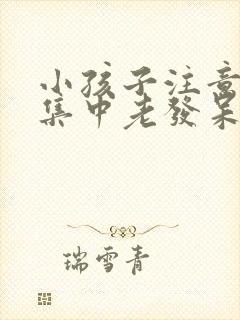 小孩子注意
集中老發呆
瑞雪青